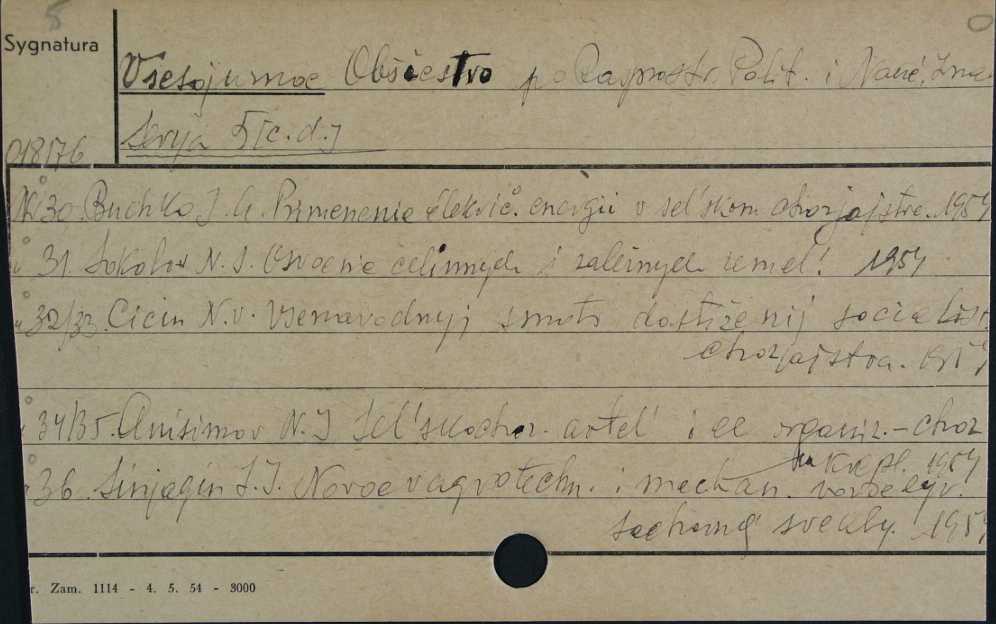 5
Sygnatura
Vsesojuznoe Obščestvo po Rasprostr. Polit. i Nauč. Zna-
Serija 5 [c.d.]
018176
No 30. Buchko I. A. Primenenie električ. energii v sel'skom chozjajstve. 1954
" 31. Sokolov N. S. Osvoenie celinnych i zaležnych zemel'. 1954
" 32/33. Cicin N. V. Vsenarodnyj smotr dostiženij socialist.
chozjajstva. 1954
" 34/35. Anisimov N. I. Sel'skochoz. artel' i ee organiz.-choz
ukrepl. 1954
" 36. Sinjagin I. I. Novoe v agrotechn. i mechan. vozdelyv.
sacharnoj svekly. 1954
r. Zam. 1114 - 4. 5. 54 - 3000